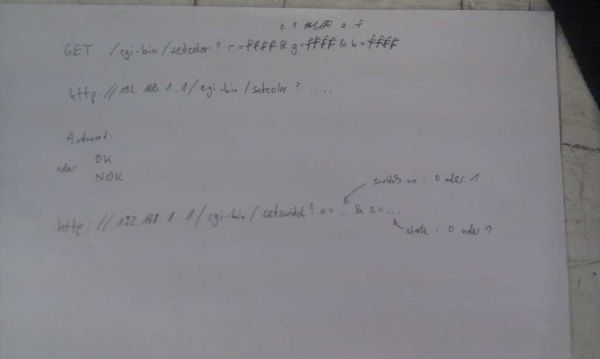 0..9 a..f
GET /cgi-bin/setcolor ? r=ffff & g=ffff & b=ffff
http://192.168.1.1/cgi-bin/setcolor ? ....
Antwort:
OK
oder
NOK
switch nr : 0 oder 1
http://192.168.1.1/cgi-bin/setswitch ? n=.. & s=...
state : 0 oder 1